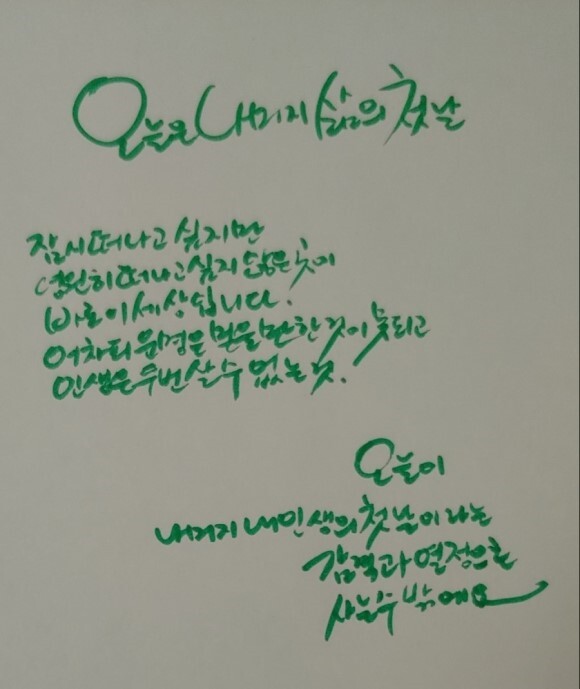 오늘은 내 머지 삶의 첫날
잠시 떠나고 싶지만
영원히 떠나고 싶지 않은 곳이
바로 이 세상입니다.
어차피 운명은 믿을만한 것이 못되고
인생은 두번 살 수 없는 것.
오늘이
내 머지 내 인생의 첫날이라는
감격과 열정으로
사는 수 밖에요